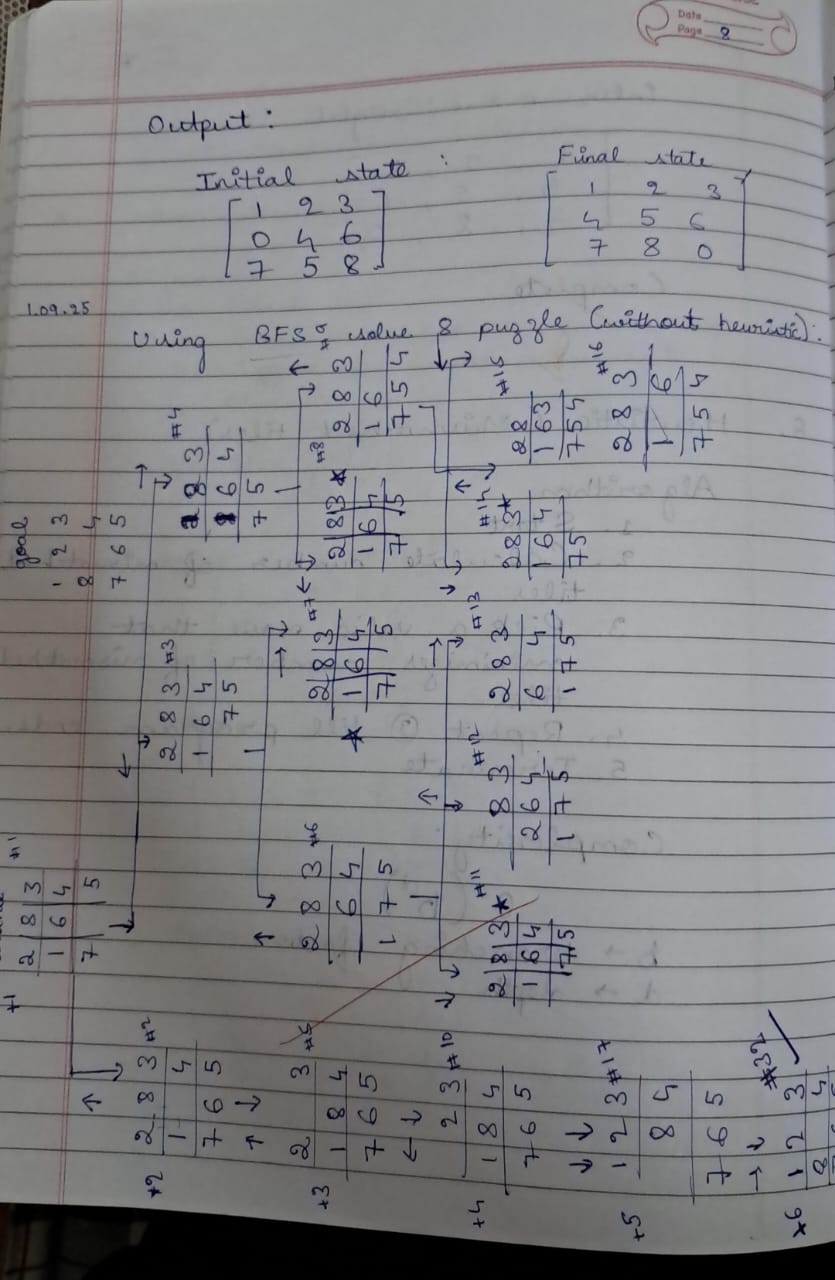 Date
Page 2
Output:
Initial state :
1 2 3
0 4 6
7 5 8
Final state
1 2 3
4 5 6
7 8 0
1.09.25
Using BFS solve 8 puzzle (without heuristic):
goal
1 2 3
8 4
7 6 5
#1
2 8 3
1 6 4
7 5
#2
2 8 3
1 4
7 6 5
#3
2 8 3
1 6 4
7 5
#4
2 8 3
1 6 4
7 5
#5
2 3
1 8 4
7 6 5
#6
2 8 3
6 4
1 7 5
#7
2 8 3
1 6 4
7 5
#8
2 8 3
1 6 4
7 5
2 8 3
1 6
7 5 4
#10
2 3
1 8 4
7 6 5
#11
2 8 3
1 6 4
7 5
#12
8 3
2 6 4
1 7 5
#13
2 8 3
6 4
1 7 5
#14
2 8 3
1 6 4
7 5
#15
2 8
1 6 3
7 5 4
#16
2 8 3
1 6
7 5 4
#17
1 2 3
8 4
7 6 5
#32
1 2 3
8 4
+1
+2
+3
+4
+5
+6